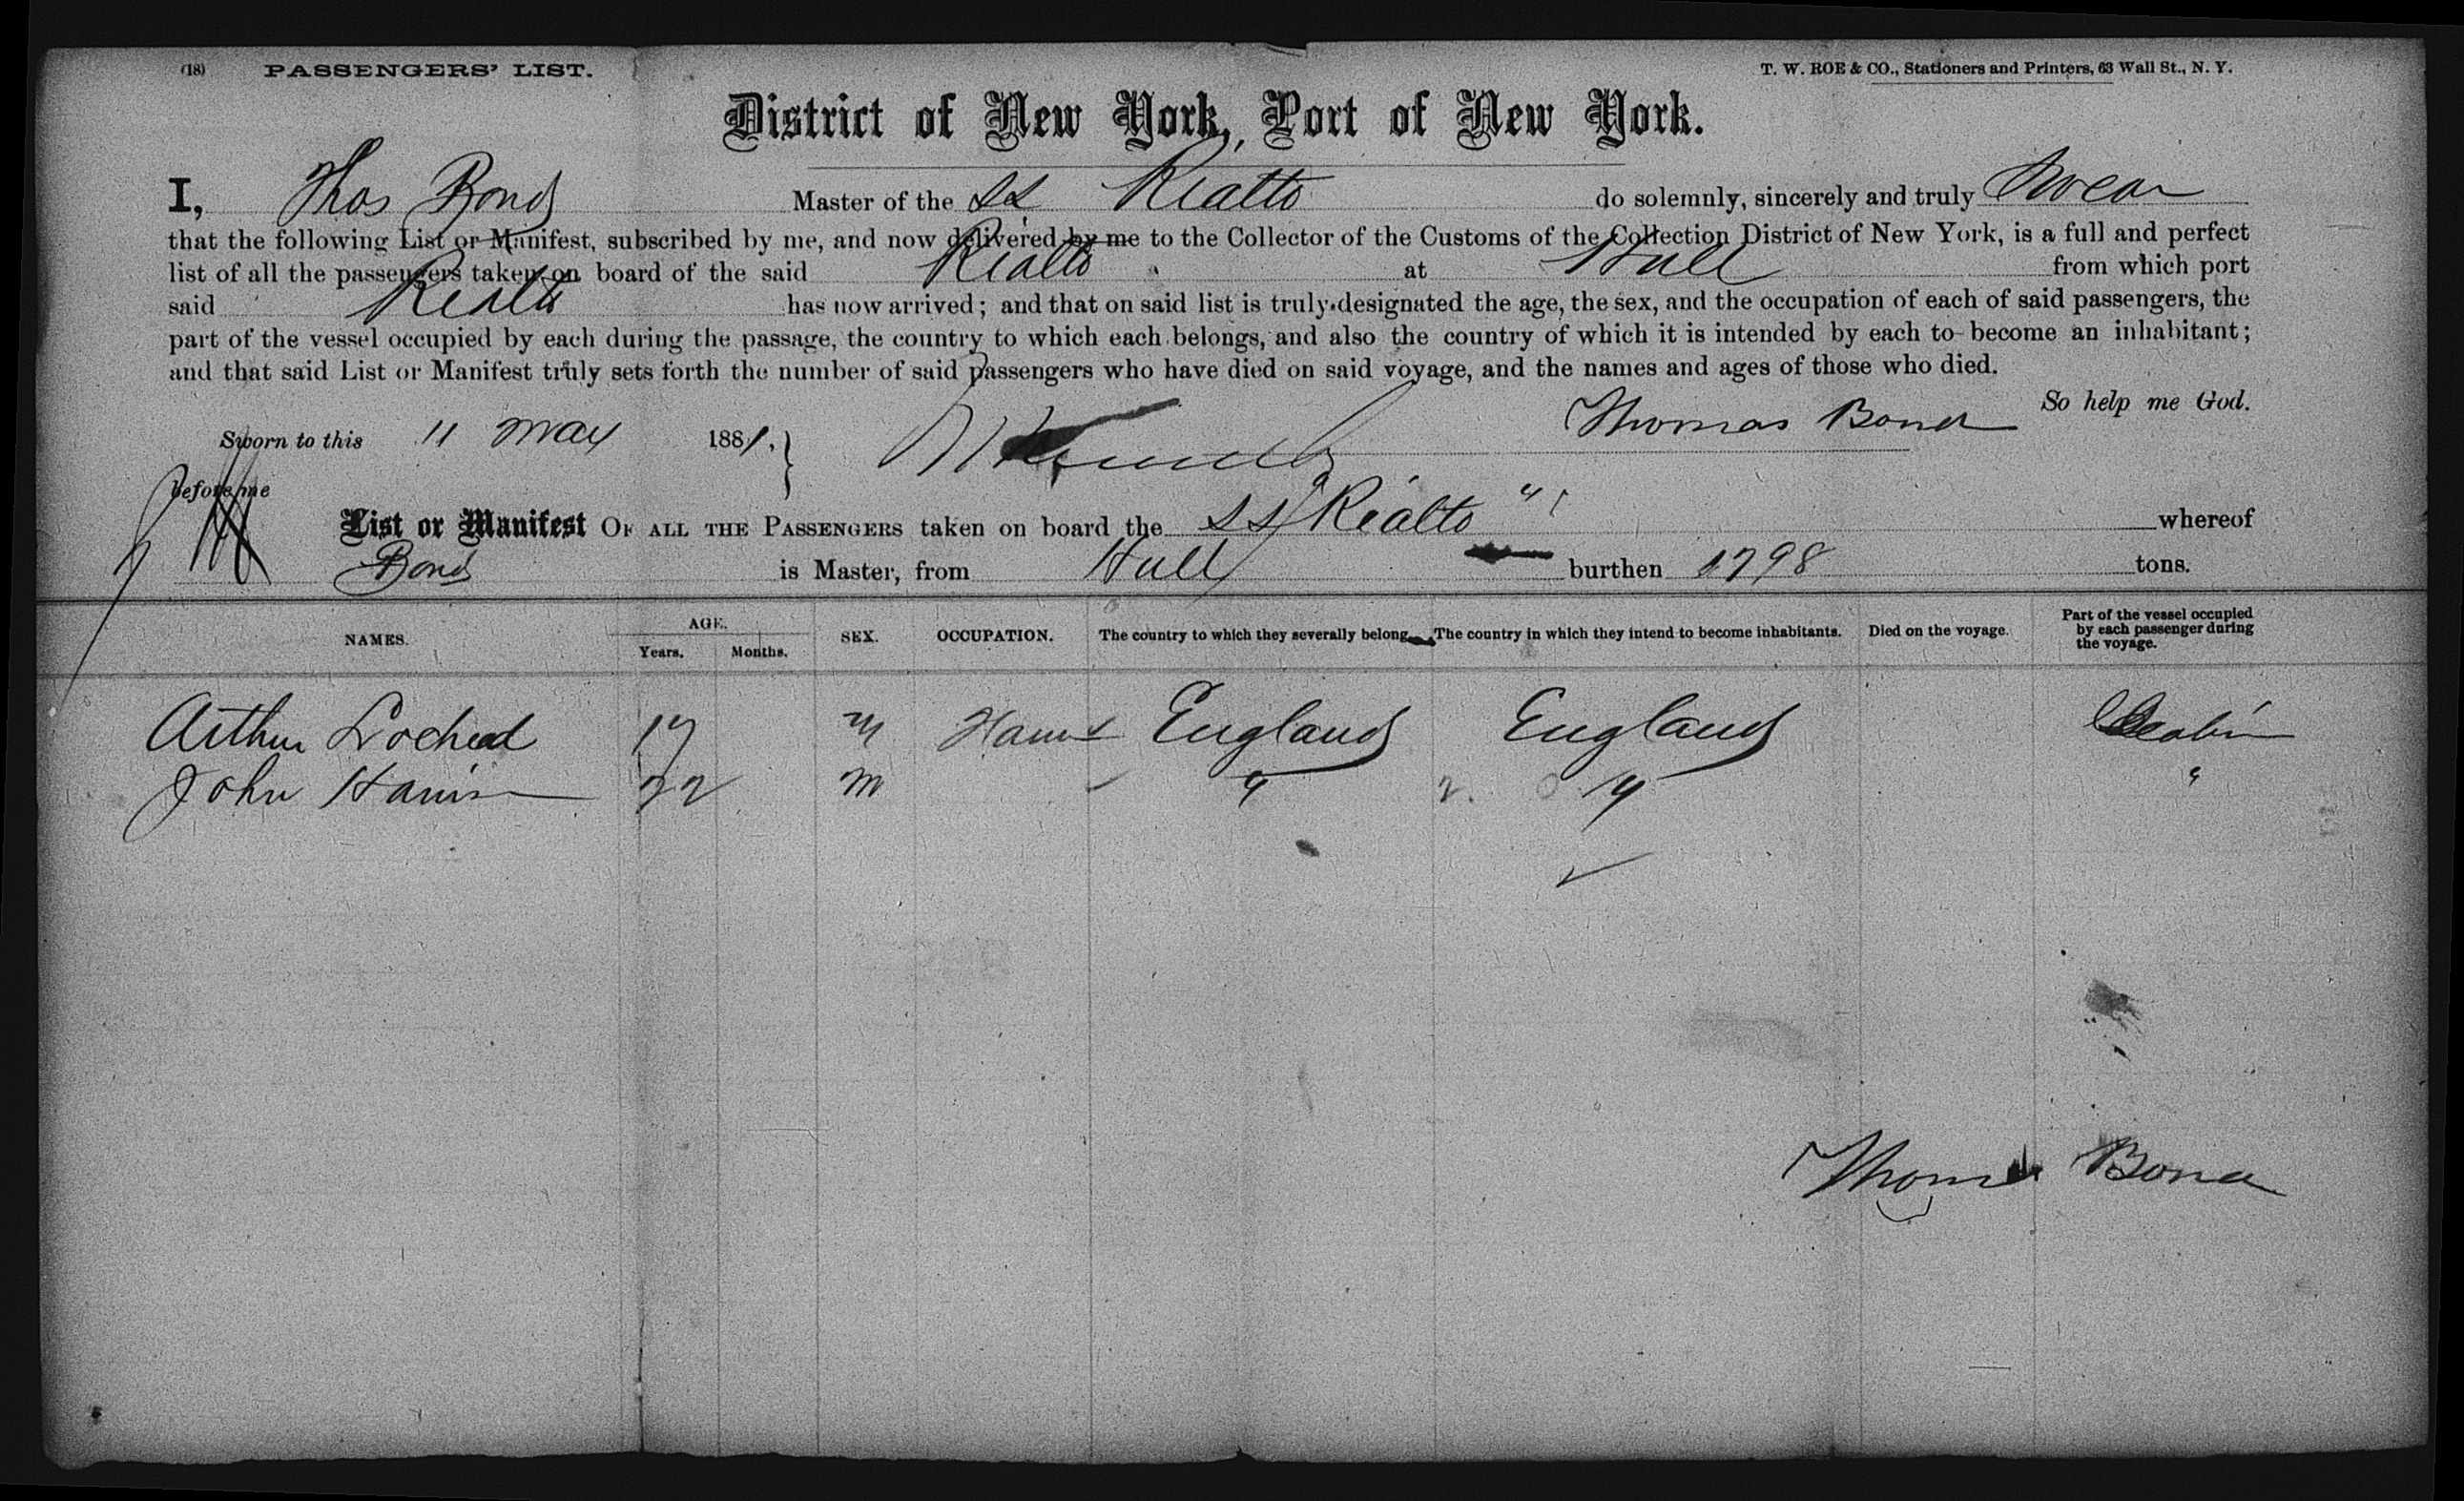 (18) PASSENGERS' LIST. T. W. ROE & CO., Stationers and Printers, 63 Wall St., N. Y.
District of New York, Port of New York.
I, Thos Bond Master of the SS Rialto do solemnly, sincerely and truly Swear
that the following List or Manifest, subscribed by me, and now delivered by me to the Collector of the Customs of the Collection District of New York, is a full and perfect
list of all the passengers taken on board of the said Rialto at Hull from which port
said Rialto has now arrived; and that on said list is truly designated the age, the sex, and the occupation of each of said passengers, the
part of the vessel occupied by each during the passage, the country to which each belongs, and also the country of which it is intended by each to become an inhabitant;
and that said List or Manifest truly sets forth the number of said passengers who have died on said voyage, and the names and ages of those who died.
So help me God.
Sworn to this 11 May 1881. Thomas Bond
before me
List or Manifest OF ALL THE PASSENGERS taken on board the SS "Rialto" whereof
Bond is Master, from Hull burthen 1798 tons.
NAMES. AGE. Years. Months. SEX. OCCUPATION. The country to which they severally belong. The country in which they intend to become inhabitants. Died on the voyage. Part of the vessel occupied by each passenger during the voyage.
Arthur Lochead 17 M England England Cabin
John 22 M " 2. "  "
Thomas Bond